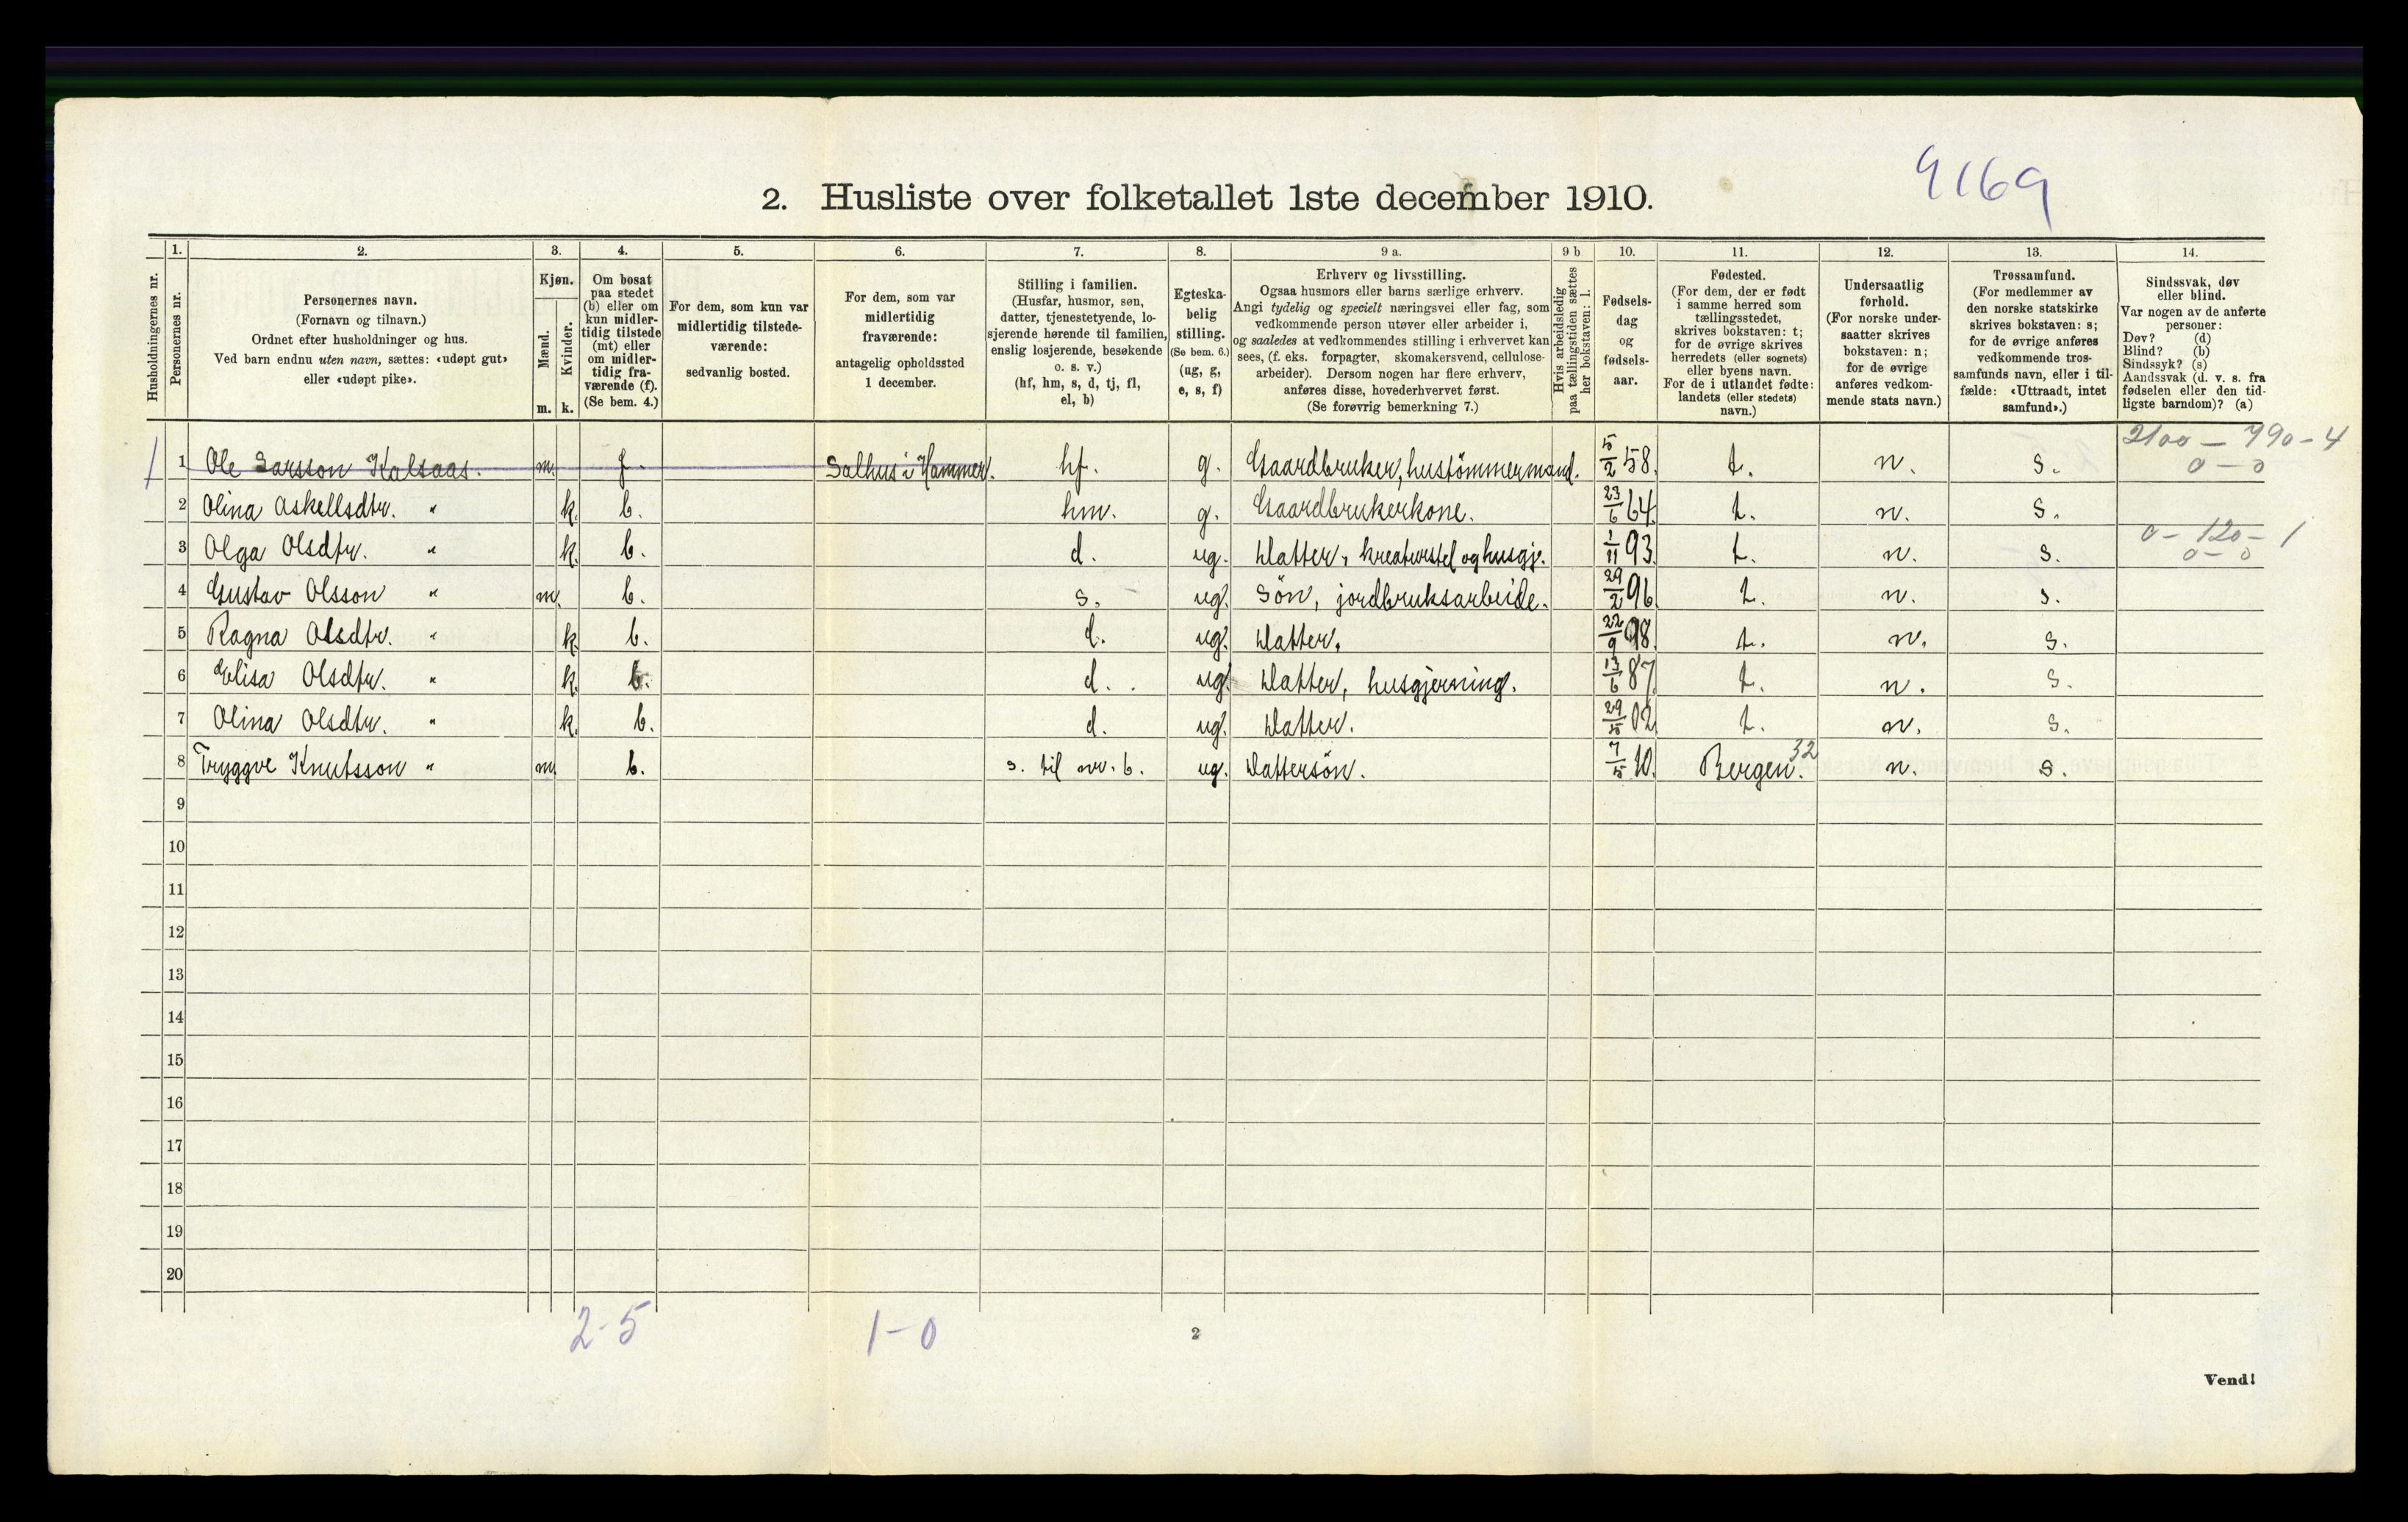 9169
2. Husliste over folketallet 1ste december 1910.
Husholdningernes nr.
1.
Personernes nr.
2.
Personernes navn.
(Fornavn og tilnavn.)
Ordnet efter husholdninger og hus.
Ved barn endnu uten navn, sættes: «udøpt gut»
eller «udøpt pike».
3.
Kjøn.
Mænd.
Kvinder.
m. k.
4.
Om bosat
paa stedet
(b) eller om
kun midler-
tidig tilstede
(mt) eller
om midler-
tidig fra-
værende (f).
(Se bem. 4.)
5.
For dem, som kun var
midlertidig tilstede-
værende:
sedvanlig bosted.
6.
For dem, som var
midlertidig
fraværende:
antagelig opholdssted
1 december.
7.
Stilling i familien.
(Husfar, husmor, søn,
datter, tjenestetyende, lo-
sjerende hørende til familien,
enslig losjerende, besøkende
o. s. v.)
(hf, hm, s, d, tj, fl,
el, b)
8.
Egteska-
belig
stilling.
(Se bem. 6.)
(ug, g,
e, s, f)
9 a.
Erhverv og livsstilling.
Ogsaa husmors eller barns særlige erhverv.
Angi tydelig og specielt næringsvei eller fag, som
vedkommende person utøver eller arbeider i,
og saaledes at vedkommendes stilling i erhvervet kan
sees, (f. eks. forpagter, skomakersvend, cellulose-
arbeider). Dersom nogen har flere erhverv,
anføres disse, hovederhvervet først.
(Se forøvrig bemerkning 7.)
9 b
Hvis arbeidsledig
paa tællingstiden sættes
her bokstaven: l.
10.
Fødsels-
dag
og
fødsels-
aar.
11.
Fødested.
(For dem, der er født
i samme herred som
tællingsstedet,
skrives bokstaven: t;
for de øvrige skrives
herredets (eller sognets)
eller byens navn.
For de i utlandet fødte:
landets (eller stedets)
navn.)
12.
Undersaatlig
forhold.
(For norske under-
saatter skrives
bokstaven: n;
for de øvrige
anføres vedkom-
mende stats navn.)
13.
Trossamfund.
(For medlemmer av
den norske statskirke
skrives bokstaven: s;
for de øvrige anføres
vedkommende tros-
samfunds navn, eller i til-
fælde: «Uttraadt, intet
samfund».)
14.
Sindssvak, døv
eller blind.
Var nogen av de anførte
personer:
Døv? (d)
Blind? (b)
Sindssyk? (s)
Aandssvak (d. v. s. fra
fødselen eller den tid-
ligste barndom)? (a)
1 1 Ole Larsson Kalsaas. m. f. Salhus i Hammer. hf. g. Gaardbruker, hustömmermand. 5/2 58. t. n. s. 2100 - 790 - 4
0 - 0
2 Olina Askellsdtr. " k. b. hm. g. Gaardbrukerkone. 23/6 64. t. n. s.
3 Olga Olsdtr. " k. b. d. ug. Datter, kreaturstel og husgje. 1/11 93. t. n. s. 0 - 120 - 1
0 - 0
4 Gustav Olsson " m. b. s. ug. Sön, jordbruksarbeide. 29/2 96. t. n. s.
5 Ragna Olsdtr. " k. b. d. ug. Datter. 22/9 98. t. n. s.
6 Elisa Olsdtr. " k. b. d. ug. Datter, husgjerning. 13/6 87. t. n. s.
7 Olina Olsdtr. " k. b. d. ug. Datter. 29/5 02. t. n. s.
8 Tryggve Knutsson " m. b. s. til nr. 6. ug. Dattersön. 7/5 10. Bergen. 32 n. s.
9
10
11
12
13
14
15
16
17
18
19
20
2-5 1-0
2
Vend!